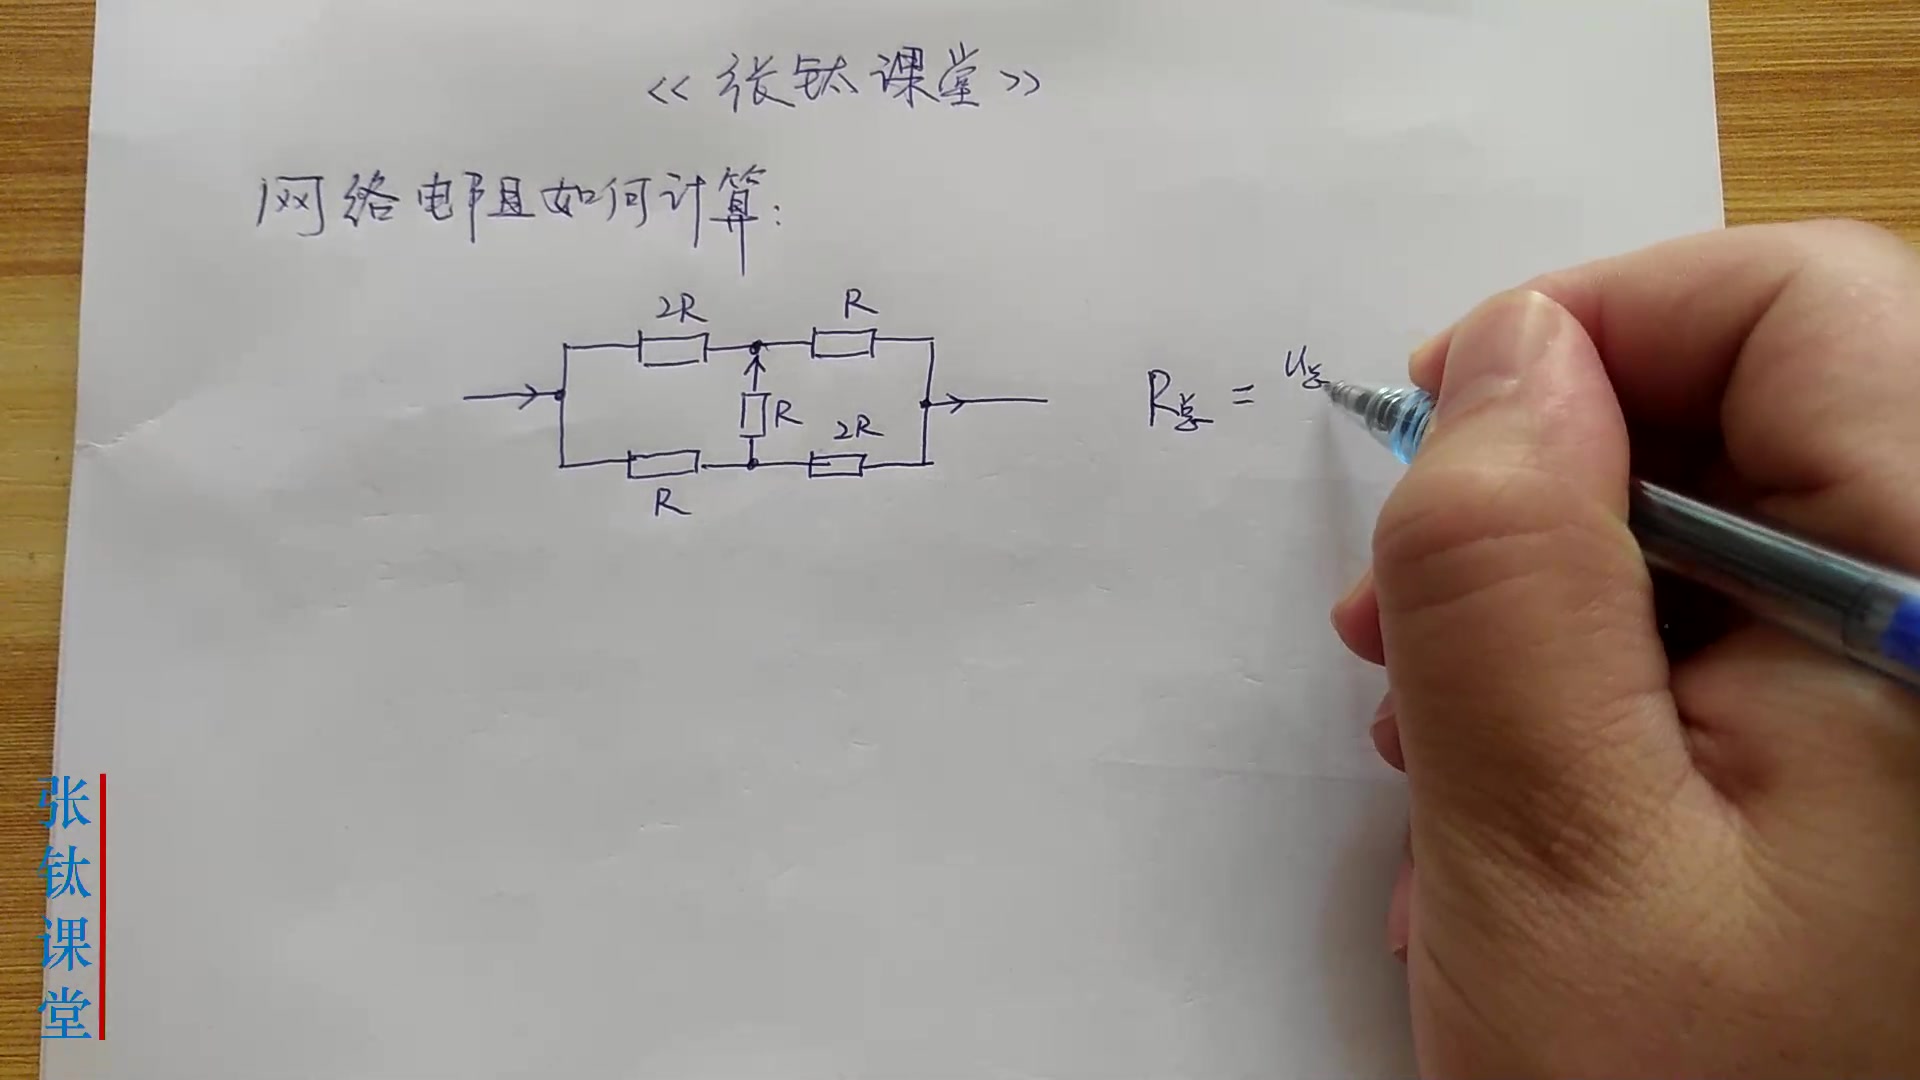 《张钛课堂》
网络电阻如何计算:
2R
R
R
2R
R
R总 = U总
张钛课堂